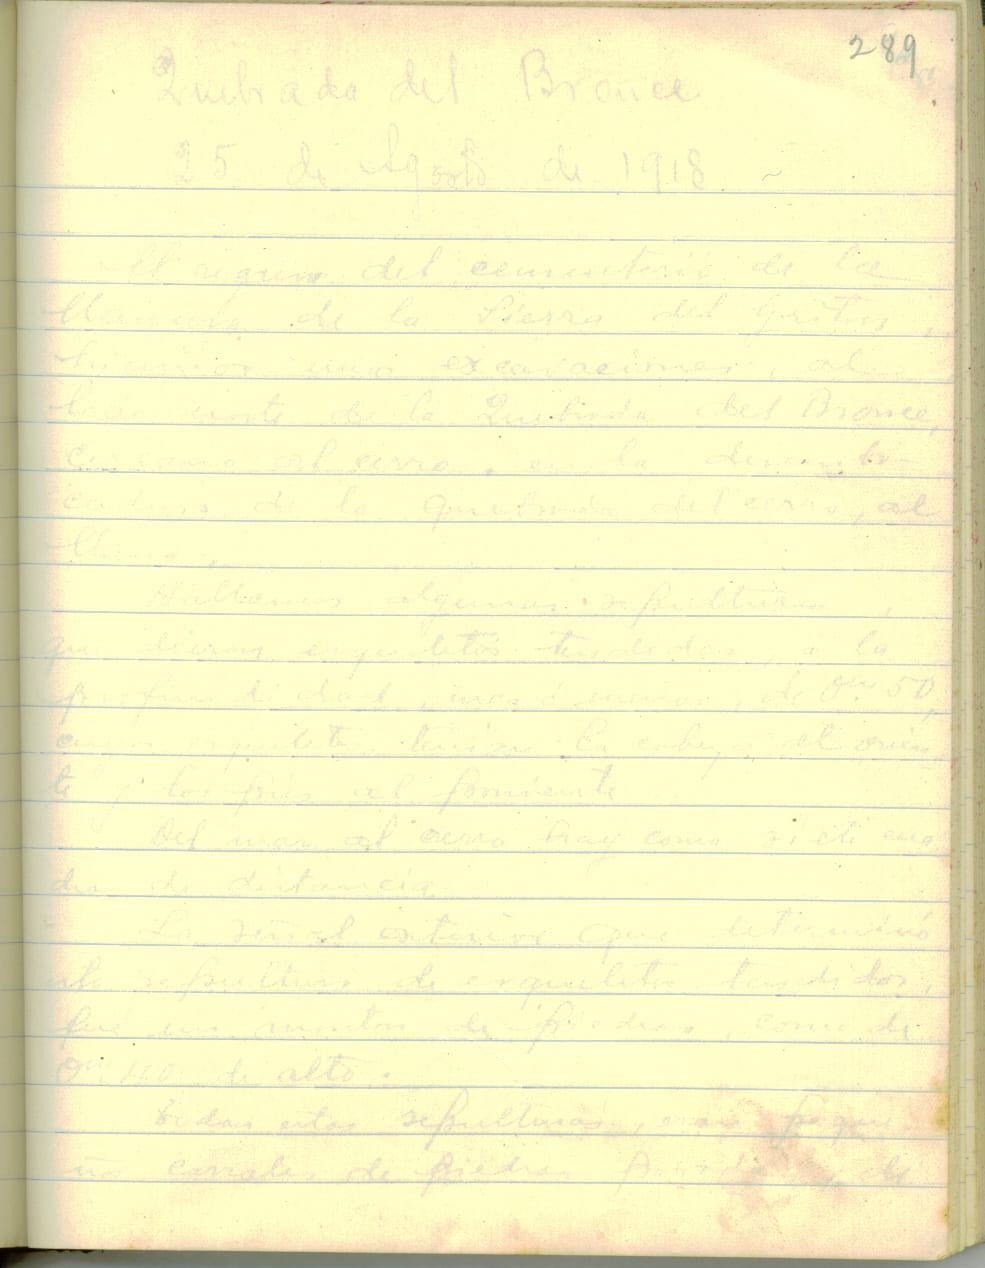 289
Quebrada del Bronce
25 de Agosto de 1918 ~
Al del cementerio de la
de la Sierra del
excavaciones, al
lado norte de la Quebrada del Bronce,
al cerro, en la desembo-
de la quebrada del cerro, al
llano.
Hallamos algunas sepulturas,
que dieron esqueletos tendidos, a la
profundidad, mas ó menos, de 0m 50,
cuyos esqueletos, tenian la cabeza al orien
te y los pies al poniente
Del mar al cerro hay como siete cua
dras de distancia
La señal exterior que determinó
sepultura de esqueletos tendidos,
fué un monton de piedras, como de
0m. 40 de alto.
Todas estas sepulturas, eran peque
ños corrales de piedras de